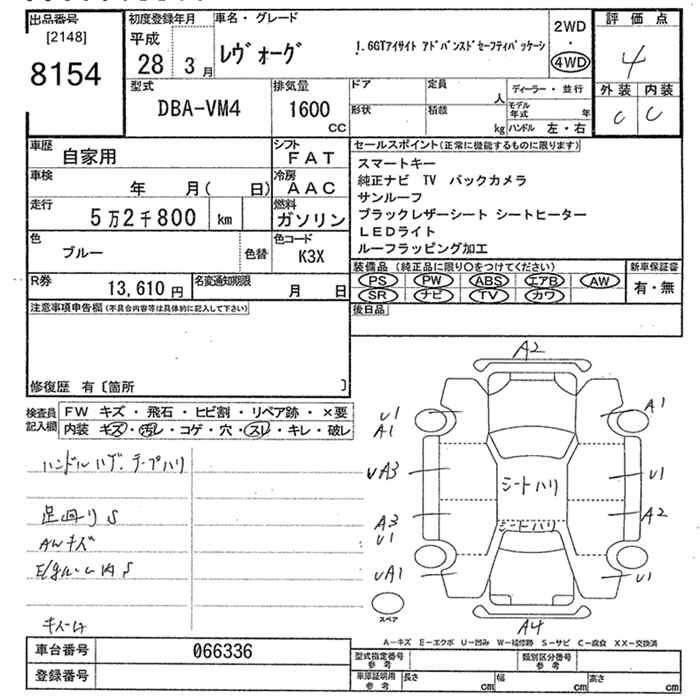 出品番号
[2148]
8154
初度登録年月
平成
28年 3月
車名・グレード
レヴォーグ
1.6GTアイサイト アドバンスドセーフティパッケージ
2WD
・
4WD
評価点
4
外装 内装
C C
型式
DBA-VM4
排気量
1600
CC
ドア
定員
人
形状
積載
kg
ディーラー・並行
モデル年式 年
ハンドル 左・右
車歴 自家用
シフト FAT
車検 年 月( 日)
冷房 AAC
走行 5万2千800 km
燃料 ガソリン
色 ブルー 色替
色コード K3X
R券 13,610円
名変通知期限 月 日
セールスポイント(正常に機能するものに限ります)
スマートキー
純正ナビ TV バックカメラ
サンルーフ
ブラックレザーシート シートヒーター
LEDライト
ルーフラッピング加工
装備品(純正品に限り○をつけてください)
PS PW ABS エアB AW
SR ナビ TV カワ
新車保証書
有・無
後日品
注意事項申告欄(不具合内容等は具体的に記入して下さい)
修復歴 有〔箇所 〕
検査員記入欄
FW キズ・飛石・ヒビ割・リペア跡・×要
内装 キズ・汚レ・コゲ・穴・スレ・キレ・破レ
ハンドルハゲ・テープハリ
足廻りS
AWキズ
E/gルーム内S
キスーム
A2
U1
A1
A1
UA3
U1
シートハリ
A3
U1
A2
シートハリ
UA1
U1
スペア
A4
A-キズ E-エクボ U-凹み W-補修跡 S-サビ C-腐食 XX-交換済
車台番号 066336
登録番号
型式指定番号
参考
類別区分番号
参考
車庫証明用
参考
長さ cm
幅 cm
高さ cm